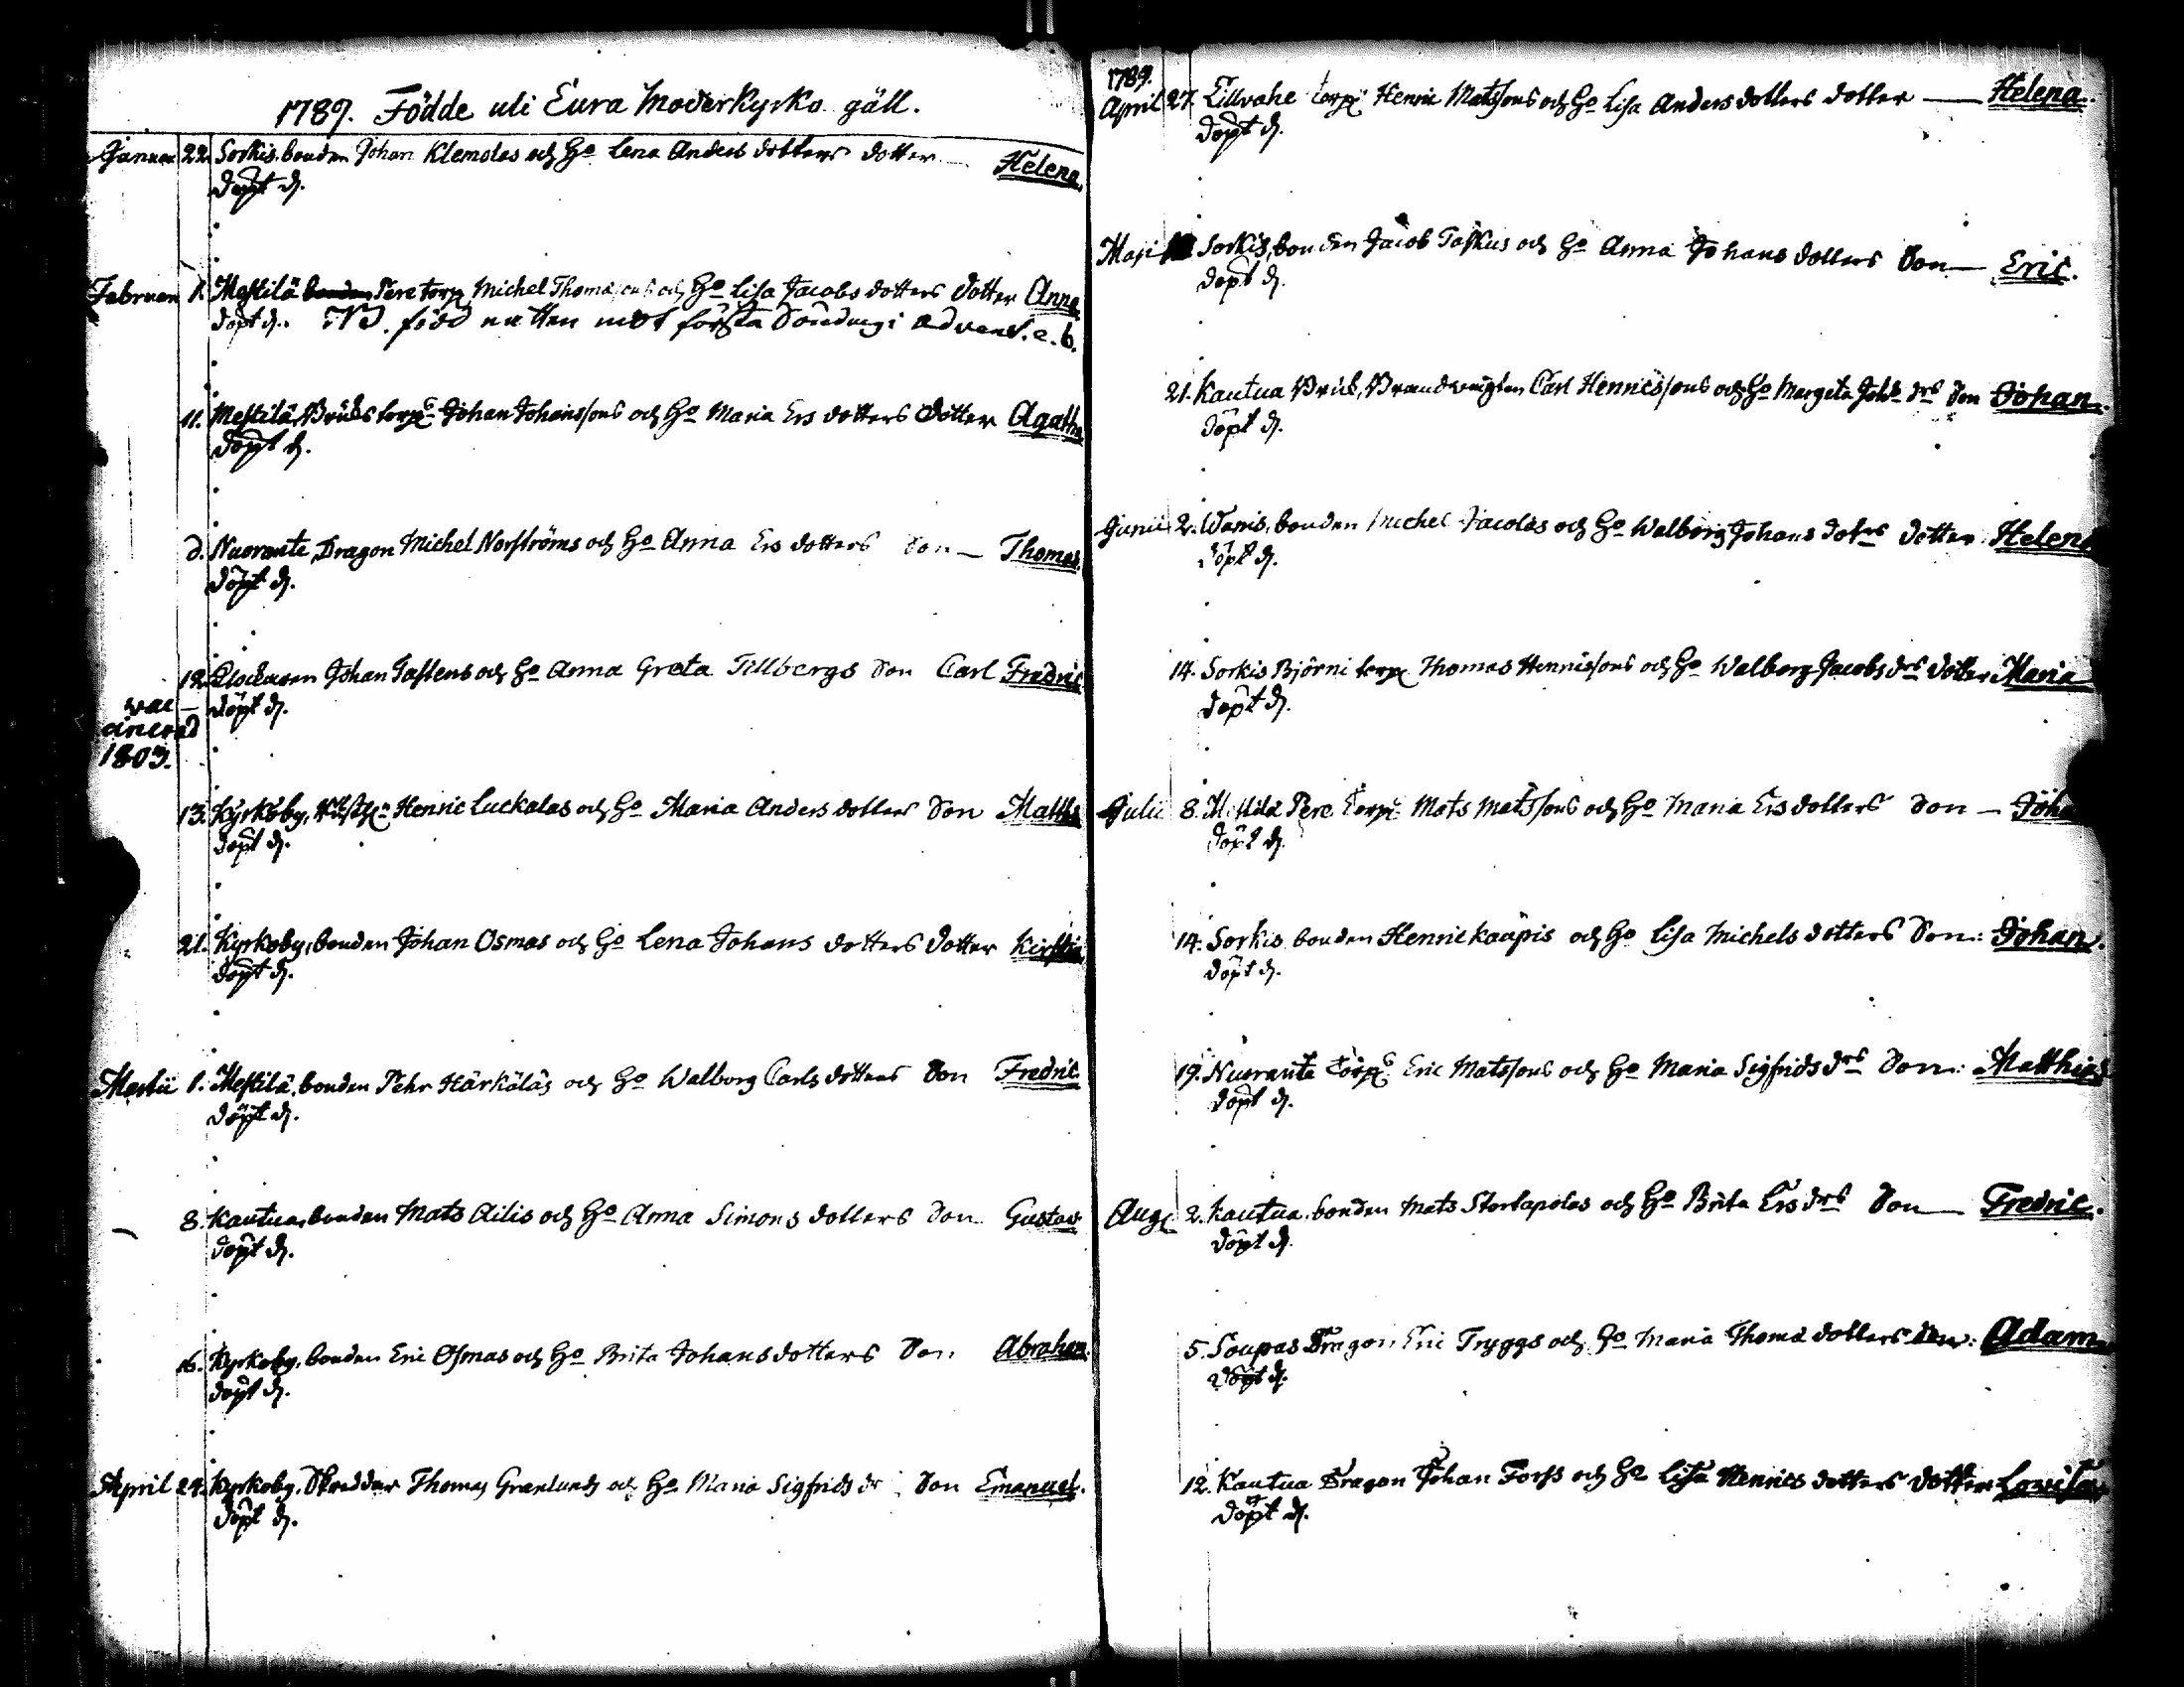 1789. Födde uti Eura Moderkyrko gäll.
Januar 22. Sorkis bonden Johan Klemolas och H:o Lena Anders dotters dotter Helena.
döpt d.
Februar 1. Mestilä Pere torp Michel Thomassons och H:o Lisa Jacobs dotters dotter Anna
döpt d. NB. född natten mot första Söndag i advent. e. b.
11. Mestilä, Bruks torp Johan Johanssons och H:o Maria Ers dotters dotter Agatha
döpt d.
d. Nuoranta, Dragon Michel Norströms och H:o Anna Ers dotters Son — Thomas.
döpt d.
12. Clockaren Johan Tastens och H:o Anna Greta Tillbergs Son Carl Fredric
döpt d.
vac-
cinerad
1803.
13. Kyrkoby, Henric Luckalas och H:o Maria Anders dotters Son Matths
döpt d.
21. Kyrkoby, bonden Johan Osmas och H:o Lena Johans dotters dotter Kirstin
döpt d.
Martii 1. Mestilä, bonden Pehr Härkäläs och H:o Walborg Carls dotters Son Fredric
döpt d.
8. Kautua, bonden Mats Ailis och H:o Anna Simons dotters Son Gustav
döpt d.
16. Kyrkoby, bonden Eric Osmas och H:o Brita Johans dotters Son Abraham
döpt d.
April 24. Kyrkoby, Skreddar Thomas Granlunds och H:o Maria Sigfrids dr Son Emanuel.
döpt d.
1789.
April 27. Lillvahe torp Henric Matssons och H:o Lisa Anders dotters dotter — Helena.
döpt d.
Maji Sorkis, bonden Jacob Taskus och H:o Anna Johans dotters Son — Eric.
döpt d.
21. Kautua Bruk, Brandvagten Carl Henricssons och H:o Margeta Joh:s drs Son Johan.
döpt d.
Junii 2. Wanis, bonden Michel Jacolas och H:o Walborg Johans dotrs dotter Helena
döpt d.
14. Sorkis Björni torp Thomas Henrissons och H:o Walborg Jacobs drs dotter Maria
döpt d.
Julii 8. Mestilä Pere Torp Mats Matssons och H:o Maria Ers dotters Son — Joha
döpt d.
14. Sorkis bonden Henric Kaupis och H:o Lisa Michels dotters Son: Johan.
döpt d.
19. Nuoranta Torp Eric Matssons och H:o Maria Sigfrids drs Son: Matthias
döpt d.
Aug 2. Kautua, bonden Mats Stortapolas och H:o Brita Ers drs Son — Fredric.
döpt d.
5. Soupas Dragon Eric Tryggs och H:o Maria Thoma dotters Son: Adam
döpt d.
12. Kautua Dragon Johan Forss och H:o Lisa Henrics dotters dotter Lovisa
döpt d.